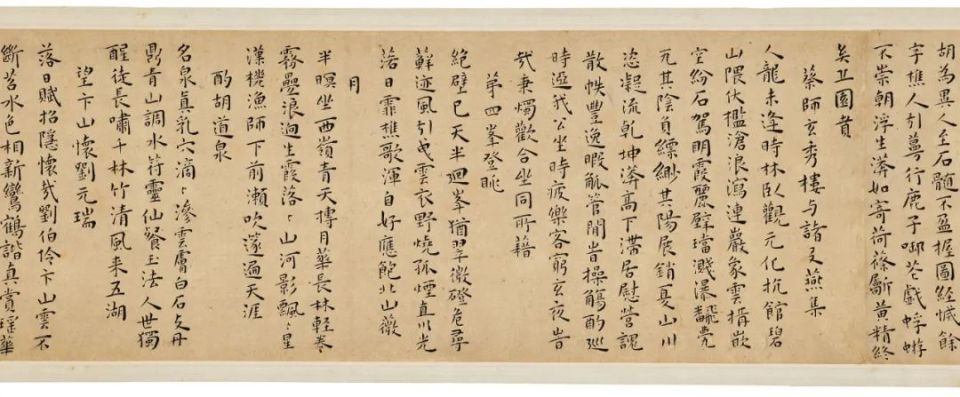 胡為異人至石髓不盈握圖經慨餘
字樵人引行鹿子啣芝戲蜉蝣
不崇朝浮生漭如寄荷篠斸黄精終
矣丘園賁
蔡師玄秀樓与諸友燕集
人龍未逢時林臥觀元化抗館碧
山隈伏檻滄浪瀉連巖象雲構嵌
空紛石駕明霞麗壁璫濺瀑飜甃
瓦其陰負縹緲其陽展銷夏山川
恣凝流乾坤漭高下滯居慰營
散帙豐逸暇觚管閒昔操觴酌巡
時迓我公坐時疲樂客窮玄夜昔
哉秉燭歡合坐同所藉
第四峯登眺
絕壁已天半迴峯猶翠微磴危尋
蘚迹風引曳雲衣野燒孤煙直川光
落日霏樵歌渾自好應飽北山薇
月
半暝坐西嶺青天摶月華長林輕卷
霧疊浪洶生霞落〻山河影飄〻星
漢槎漁師下前瀨吹篴遍天涯
酌胡道泉
名泉真乳穴滴〻滲雲膚白石支丹
鼎青山調水符靈仙餐玉法人世獨
醒徒長嘯千林竹清風来五湖
望卞山懷劉元瑞
落日賦招隱懷哉劉伯伶卞山雲不
斷苕水色相新鸞鶴諧真賞瑶華